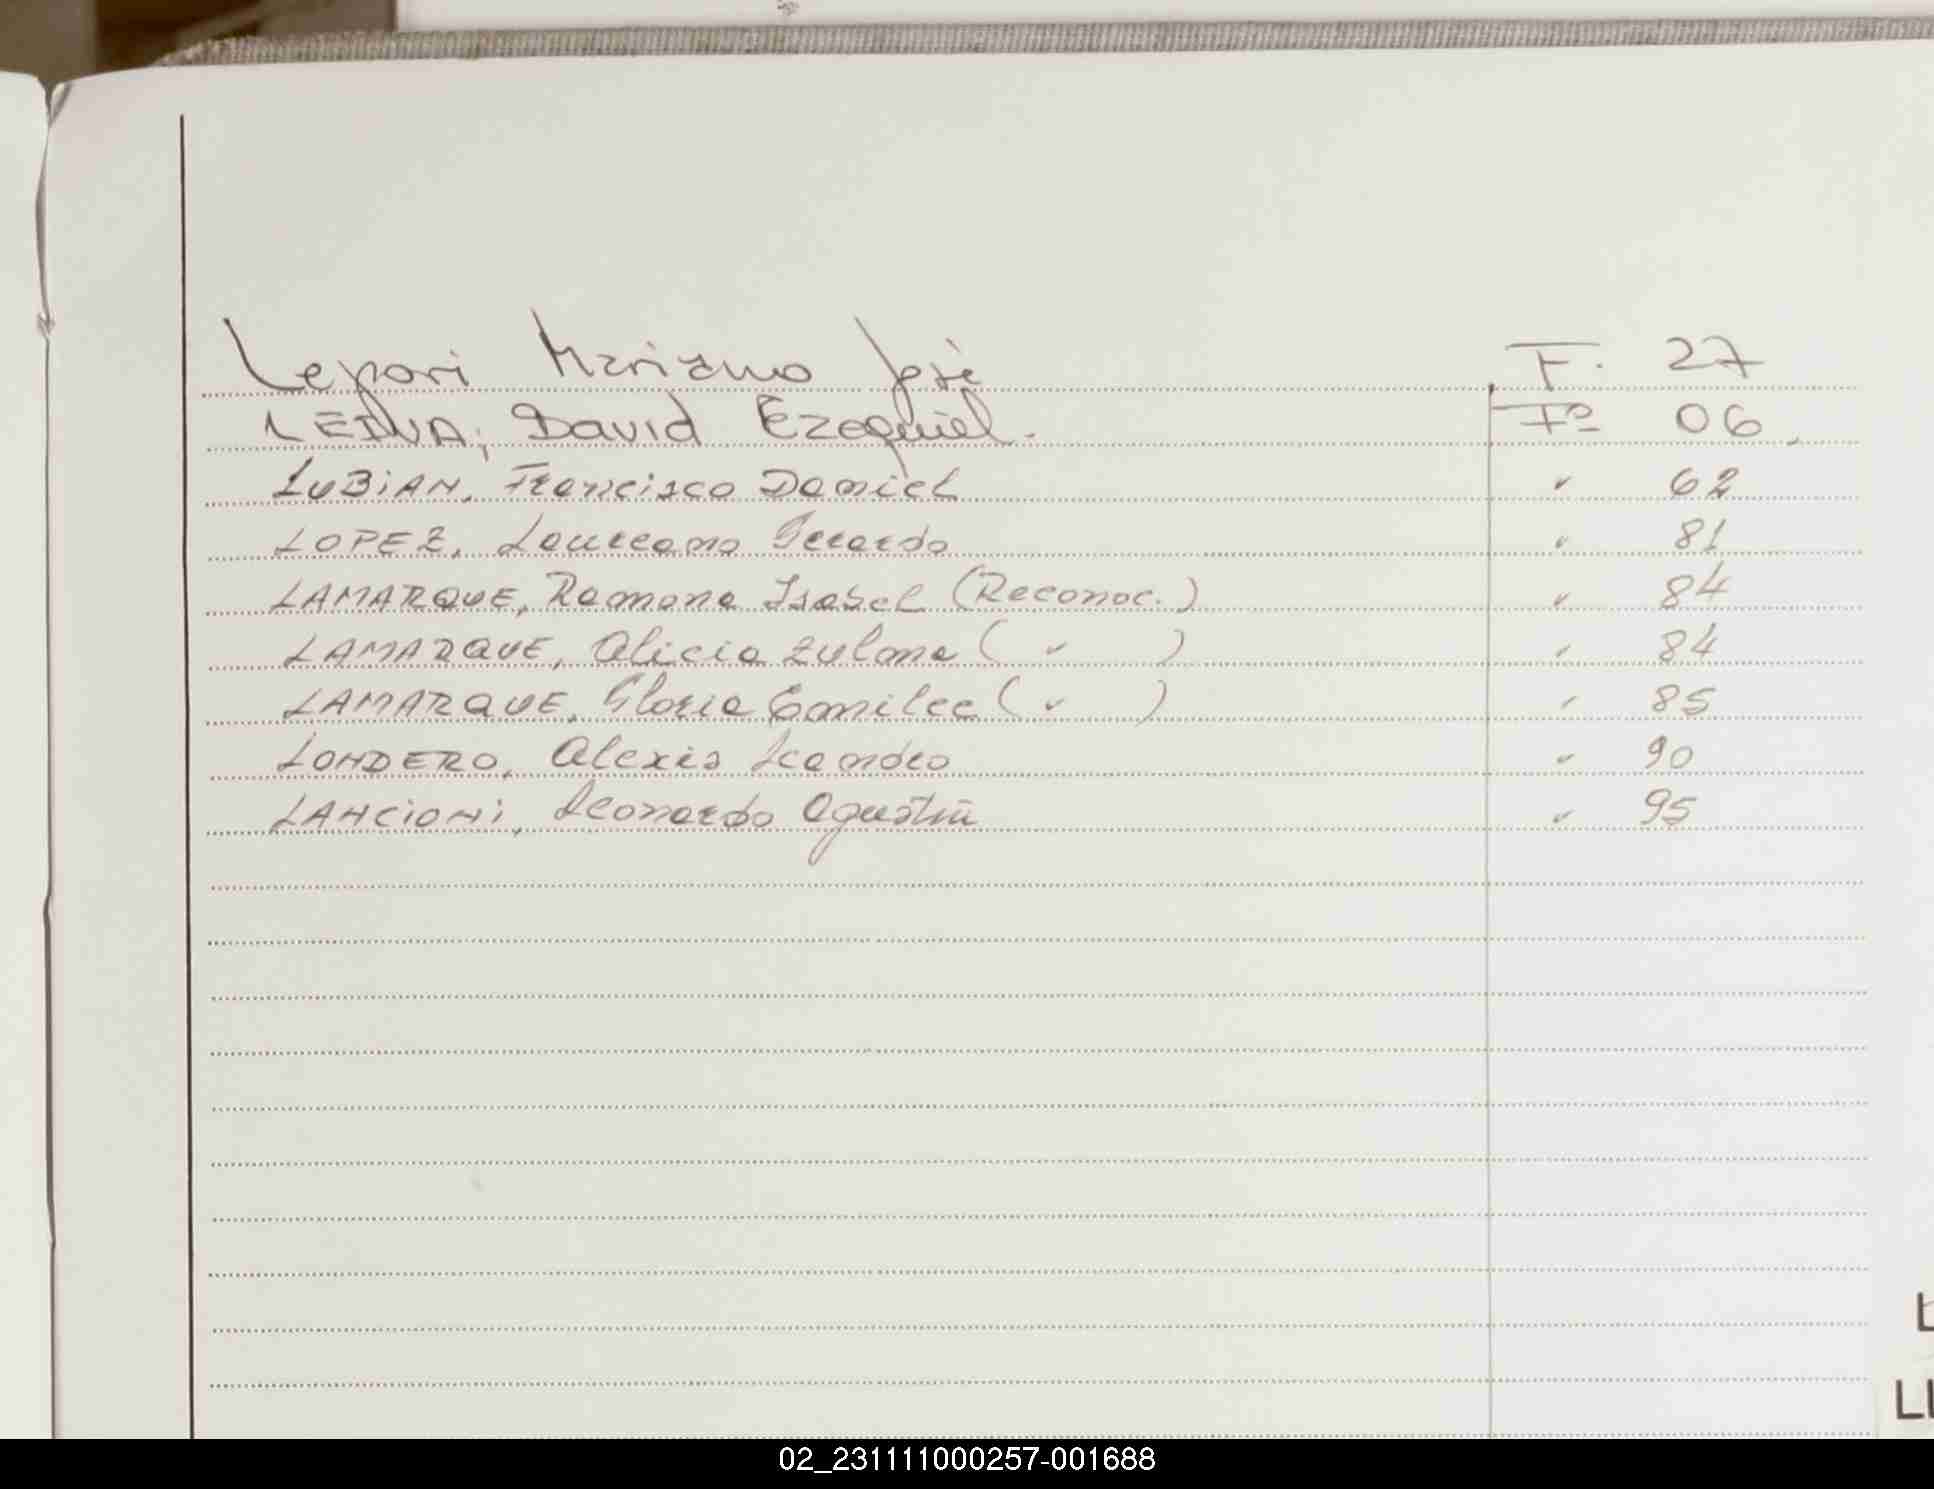 Lepori Mariano José F. 27
LEIVA, David Ezequiel. Fº 06.
LUBiAN, Francisco Daniel " 62
LOPEZ, Laureano Gerardo " 81
LAMARQUE, Ramona Isabel (Reconoc.) " 84
LAMARQUE, Alicia Zulma ( " ) " 84
LAMARQUE, Gloria Emilce ( " ) " 85
LONDERO, Alexis Leandro " 90
LANCiONi, Leonardo Agustín " 95
L
LL
02_231111000257-001688